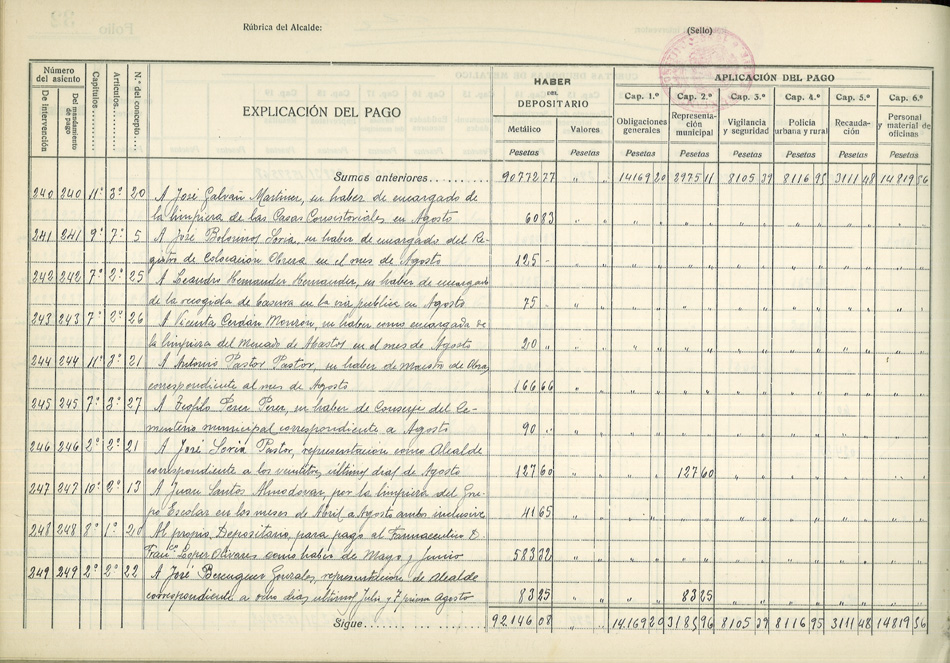 Rúbrica del Alcalde:
(Sello)
Número del asiento
De intervención
Del mandamiento de pago
Capítulos
Artículos.
N.º del concepto.
EXPLICACIÓN DEL PAGO
HABER DEL DEPOSITARIO
Metálico Valores
Pesetas Pesetas
APLICACIÓN DEL PAGO
Cap. 1.º Cap. 2.º Cap. 3.º Cap. 4.º Cap. 5.º Cap. 6.º
Obligaciones generales. Representación municipal Vigilancia y seguridad Policía urbana y rural Recaudación Personal y material de oficinas
Pesetas Pesetas Pesetas Pesetas Pesetas Pesetas
Sumas anteriores 90772 77 " " 14169 20 2975 11 8105 39 8116 95 3111 48 14819 56
240 240 11º 3º 20 A José Galván Martinez, en haber de encargado de
la limpieza de las Casas Consistoriales en Agosto 60 83
241 241 9º 7º 5 A José Soria, en haber de encargado del Re-
gistro de Colocación Obrera en el mes de Agosto 125 -
242 242 7º 2º 25 A Leandro Hernandez Hernandez, en haber de encargado
de la recogida de basura en la vía publica en Agosto 75 -
243 243 7º 2º 26 A Vicenta Cerdán Monzón, en haber como encargada de
la limpieza del Mercado de Abastos en el mes de Agosto 20 "
244 244 11º 3º 21 A Antonio Pastor Pastor, en haber de Maestro de Obras,
correspondiente al mes de Agosto 166 66
245 245 7º 3º 27 A Teofilo Perez Perez, en haber de Conserje del Ce-
menterio municipal correspondiente a Agosto 90 "
246 246 2º 2º 21 A José Soria Pastor, representacion como Alcalde
correspondiente a los veintitres ultimos dias de Agosto 127 60 127 60
247 247 10º 2º 13 A Juan Santos Almodovar, por la limpieza del Gru-
po Escolar en los meses de Abril a Agosto ambos inclusive 41 65
248 248 8º 1º 20 Al propio Depositario, para pago al Farmaceutico D.
Franco Lopez Olivares como haber de Mayo y Junio 583 32
249 249 2º 2º 22 A José Berenguer Gonzales, representacion de Alcalde
correspondiente a ocho dias ultimos Julio y 7 primeros Agosto 83 25 83 25
Sigue 92.146 08 14.169 20 3185 96 8105 39 8116 95 3111 48 14819 56